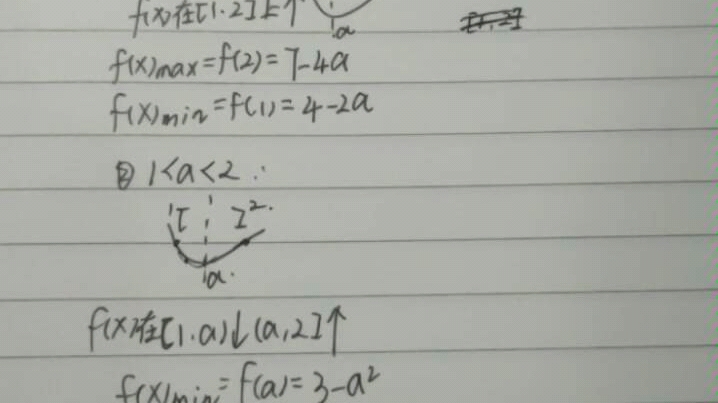 f(x)在[1.2]上↑
a
f(x)max=f(2)=7-4a
f(x)min=f(1)=4-2a
② 1<a<2:
1[ ]2.
a.
f(x)在[1.a)↓(a,2]↑
f(x)min=f(a)=3-a²